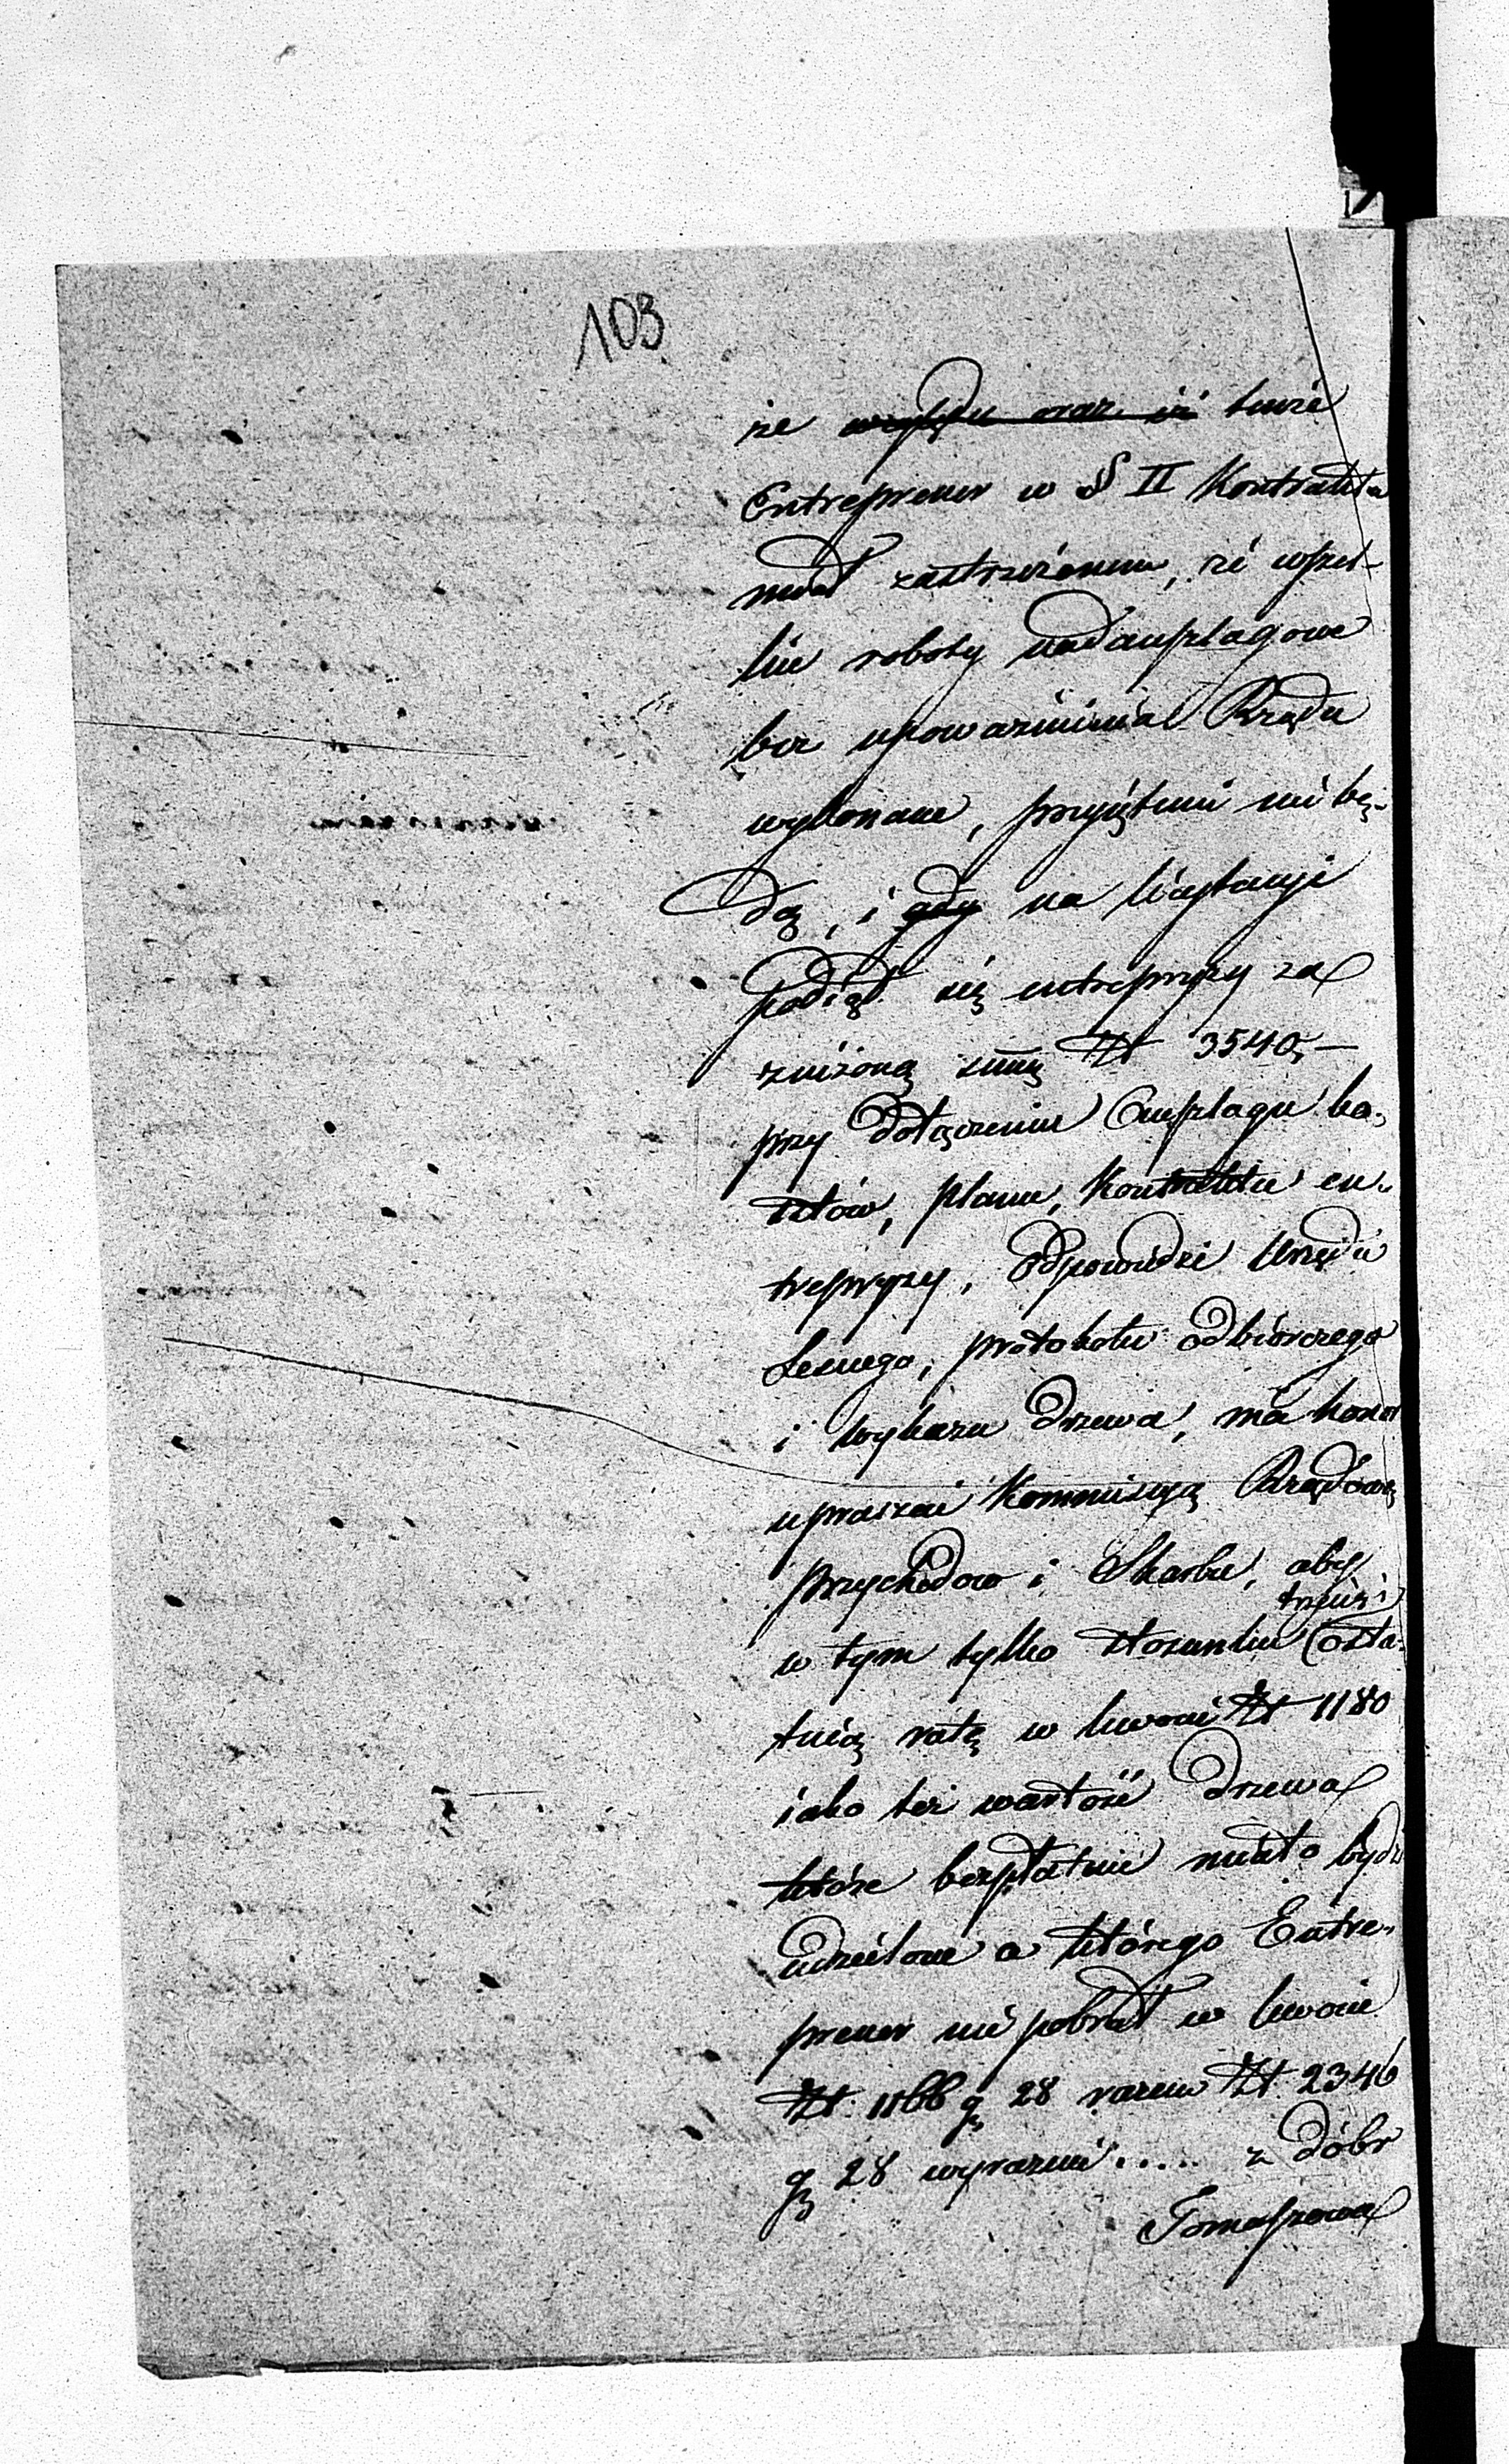 103
że względu oraz iż tenże
Entreprener w § II Kontraktu
miał zastrzeżonem, że wszel-
kie roboty nadanszlagowe
bez upoważnienia Rządu
wykonane, przyjętemi nie bę-
dą, i gdy na licytacyi
podiął się entrepryzy za
zniżoną summę Złt 3540,—
przy dołączeniu Anszlagu ko-
sztów, planu, Kontraktu en-
trepryzy, Odpowiedzi Urzędu
Leśnego, protokołu odbiorczego
i wykazu drzewa, ma honor
upraszać Kommissyą Rządową
Przychodow i Skarbu, aby
trzecią i
w tym tylko stosunku osta-
tnią ratę w kwocie Złt 1180
iako też wartość drzewa
które bezpłatnie miało bydź
udzielone a którego Entre-
prener nie pobrał w kwocie
Złt. 1166 g 28 razem Złt. 2346
g 28 wyraznie..... z dóbr
Tomaszowa